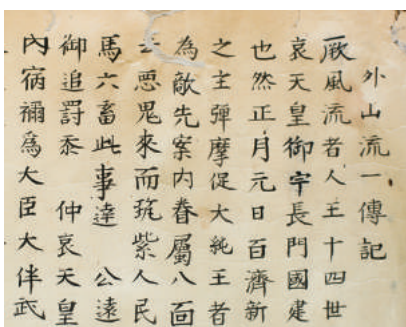 外山流一傳記
厥風流者人王十四世
哀天皇御宇長門國建
也然正月元日百濟新
之主彈摩促大純王者
為敵先案内眷屬八面
悪鬼來而筑紫人民
馬六畜此事達 公遠
御追罰忝 仲哀天皇
内病禰爲大臣大伴武